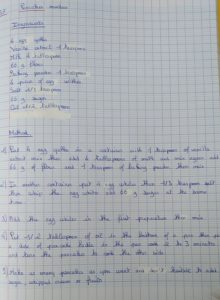 Pancakes recipe
Ingredients
4 egg yolks
Vanilla extract 1 teaspoon
Milk 4 tablespoon
60 g flour
Baking powder 1 teaspoon
4 egg whites
Salt 1/2 teaspoon
60 g sugar
Oil 1/2 tablespoon
Method
1) Put 4 egg yolks in a container with 1 teaspoon of vanilla
extract mix then add 4 tablespoons of milk and mix again add
60 g of flour and 1 teaspoon of baking powder then mix
2) In another container put 4 egg whites then 1/2 teaspoon salt
then whip the egg whites and 60 g sugar at the same
time
3) Add the egg whites in the first preparation then mix
4) Put 1/2 tablespoon of oil in the bottom of a pan then put
a ladle of pancake batter in the pan cook 2 to 3 minutes
and turn the pancakes to cook the other side
5) Make as many pancakes as you want and don't hesitate to add
sugar, whipped cream or fruits